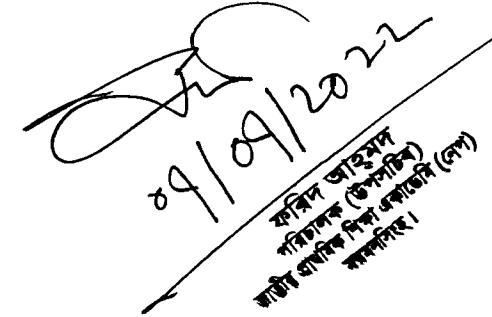 ০৭/০৭/২০২২
ফরিদ আহমদ
পরিচালক (উপসচিব)
জাতীয় প্রাথমিক শিক্ষা একাডেমি (নেপ)
ময়মনসিংহ।